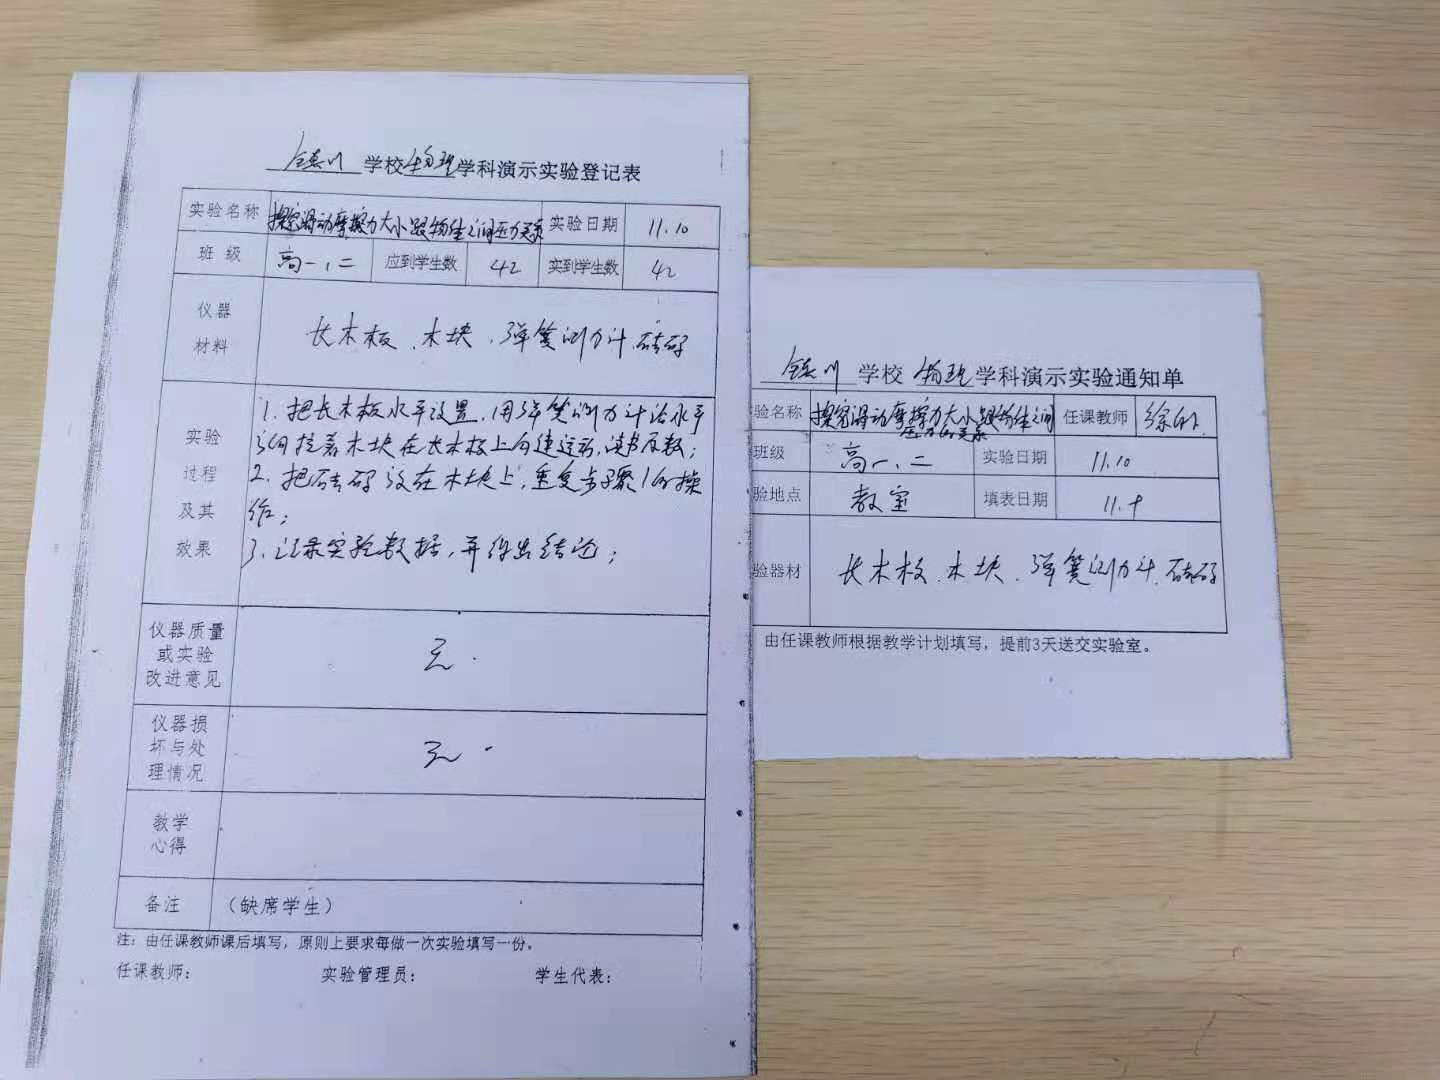 学校物理学科演示实验登记表
实验名称 探究滑动摩擦力大小跟物体之间压力关系 实验日期 11.10
班级 高一、二 应到学生数 42 实到学生数 42
仪器
材料
长木板、木块、弹簧测力计、砝码
实验
过程
及其
效果
1、把长木板水平放置,用弹簧测力计沿水平
方向拉着木块在长木板上匀速运动,读出示数;
2、把砝码放在木块上,重复步骤1的操
作;
3、记录实验数据,并得出结论;
仪器质量
或实验
改进意见
无.
仪器损
坏与处
理情况
无.
教学
心得
备注 (缺席学生)
注:由任课教师课后填写,原则上要求每做一次实验填写一份。
任课教师: 实验管理员: 学生代表:
学校 物理 学科演示实验通知单
验名称 探究滑动摩擦力大小跟物体之间
压力的关系 任课教师
班级 高一、二 实验日期 11.10
验地点 教室 填表日期 11.7
验器材 长木板、木块、弹簧测力计、砝码
由任课教师根据教学计划填写,提前3天送交实验室。